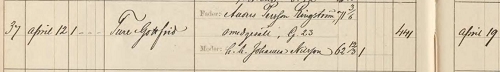 Fader: Anders Persson Ringström 71 3/6
37 april 12 1 Ture Gottfrid smedgesäll, G. 23 44 april 19
Moder: Johanna Nilsson 62 12/12 1